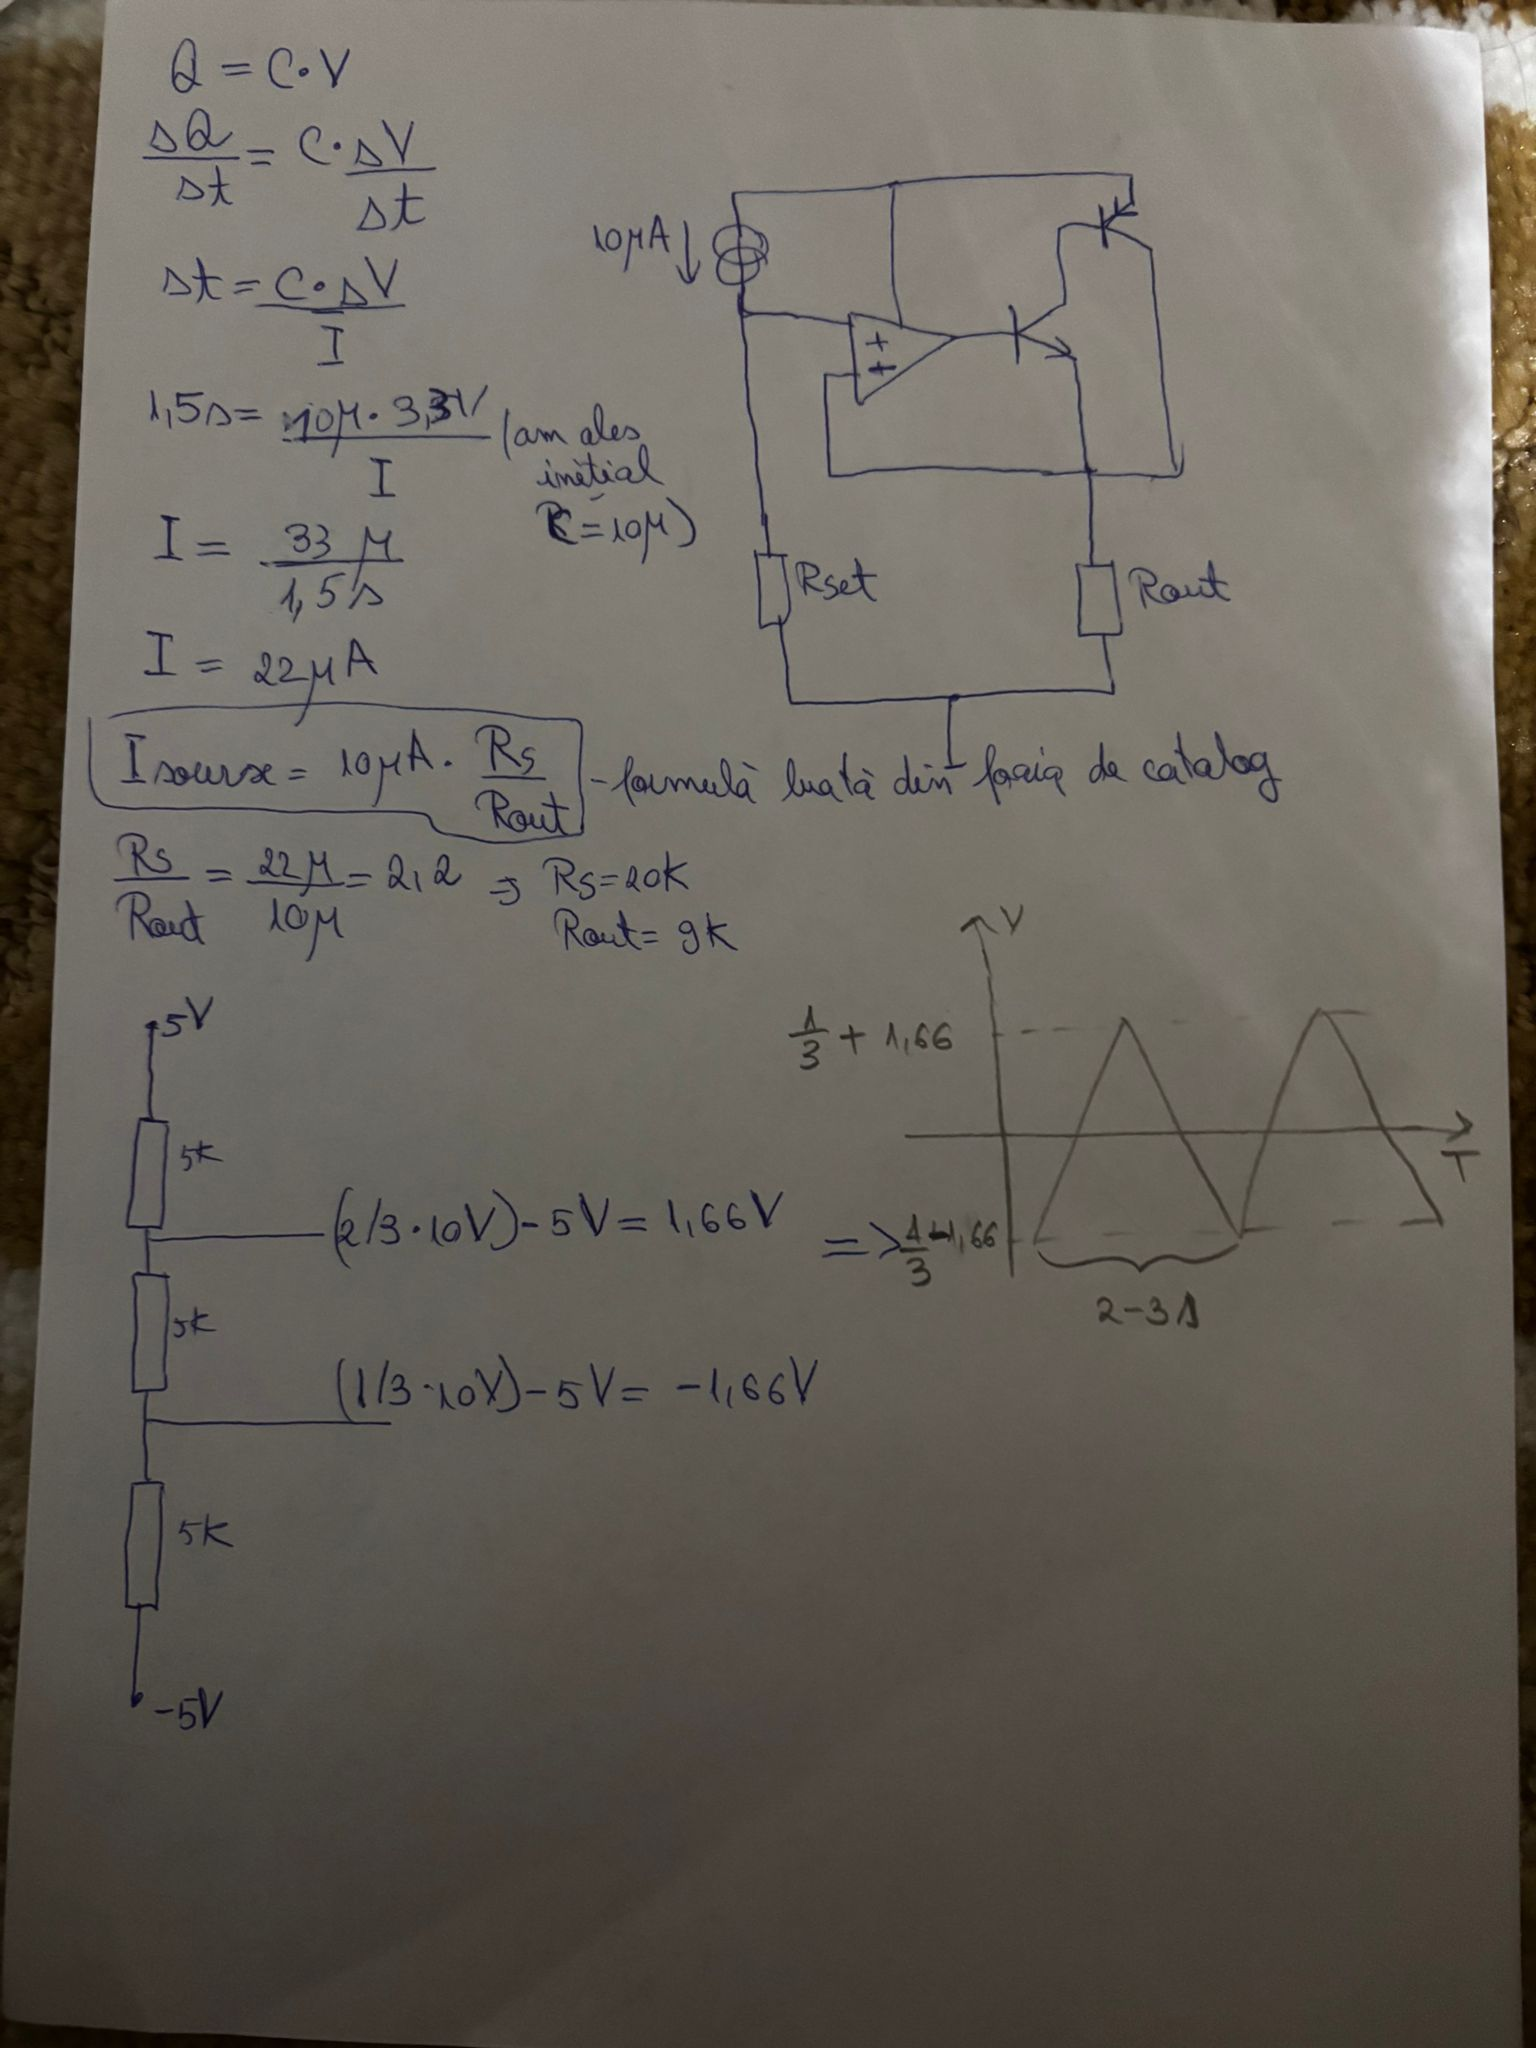 Q = C·V
ΔQ/Δt = C·ΔV/Δt
Δt = C·ΔV/I
1,5s = 10µ·3,3V/I (am ales
inițial
C=10µ)
I = 33µ/1,5s
I = 22µA
Isource = 10µA·Rs/Rout - formulă luată din foaia de catalog
Rs/Rout = 22µ/10µ = 2,2 => Rs=20K
Rout= 9K
10µA
+
+
Rset
Rout
5V
5K
(2/3·10V)-5V= 1,66V
5K
(1/3·10V)-5V= -1,66V
5K
-5V
=>
V
1/3 + 1,66
T
1/3 -1,66
2-3s